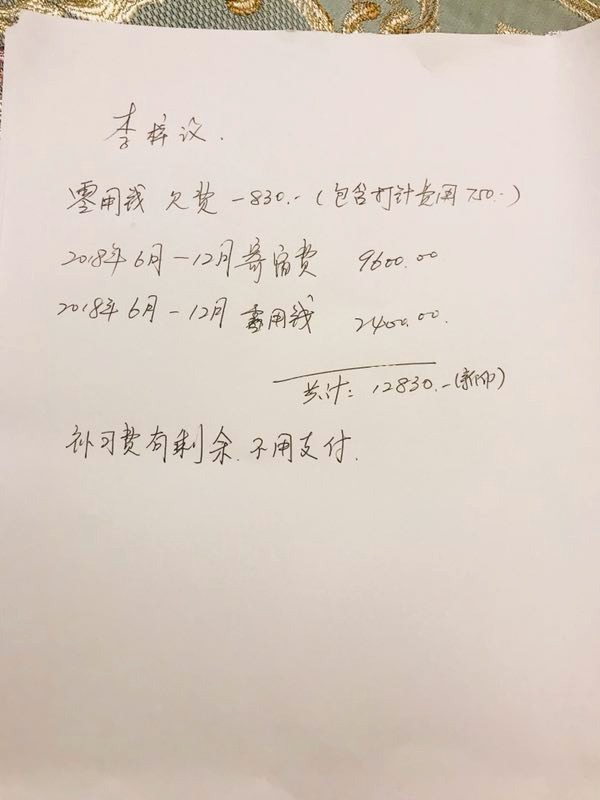 李梓议.
零用钱 欠费 -830.- (包含打针费用 750.-)
2018年6月-12月寄宿费 9600.00
2018年6月-12月零用钱 2400.00.
共计: 12830.-(新币)
补习费有剩余.不用支付.